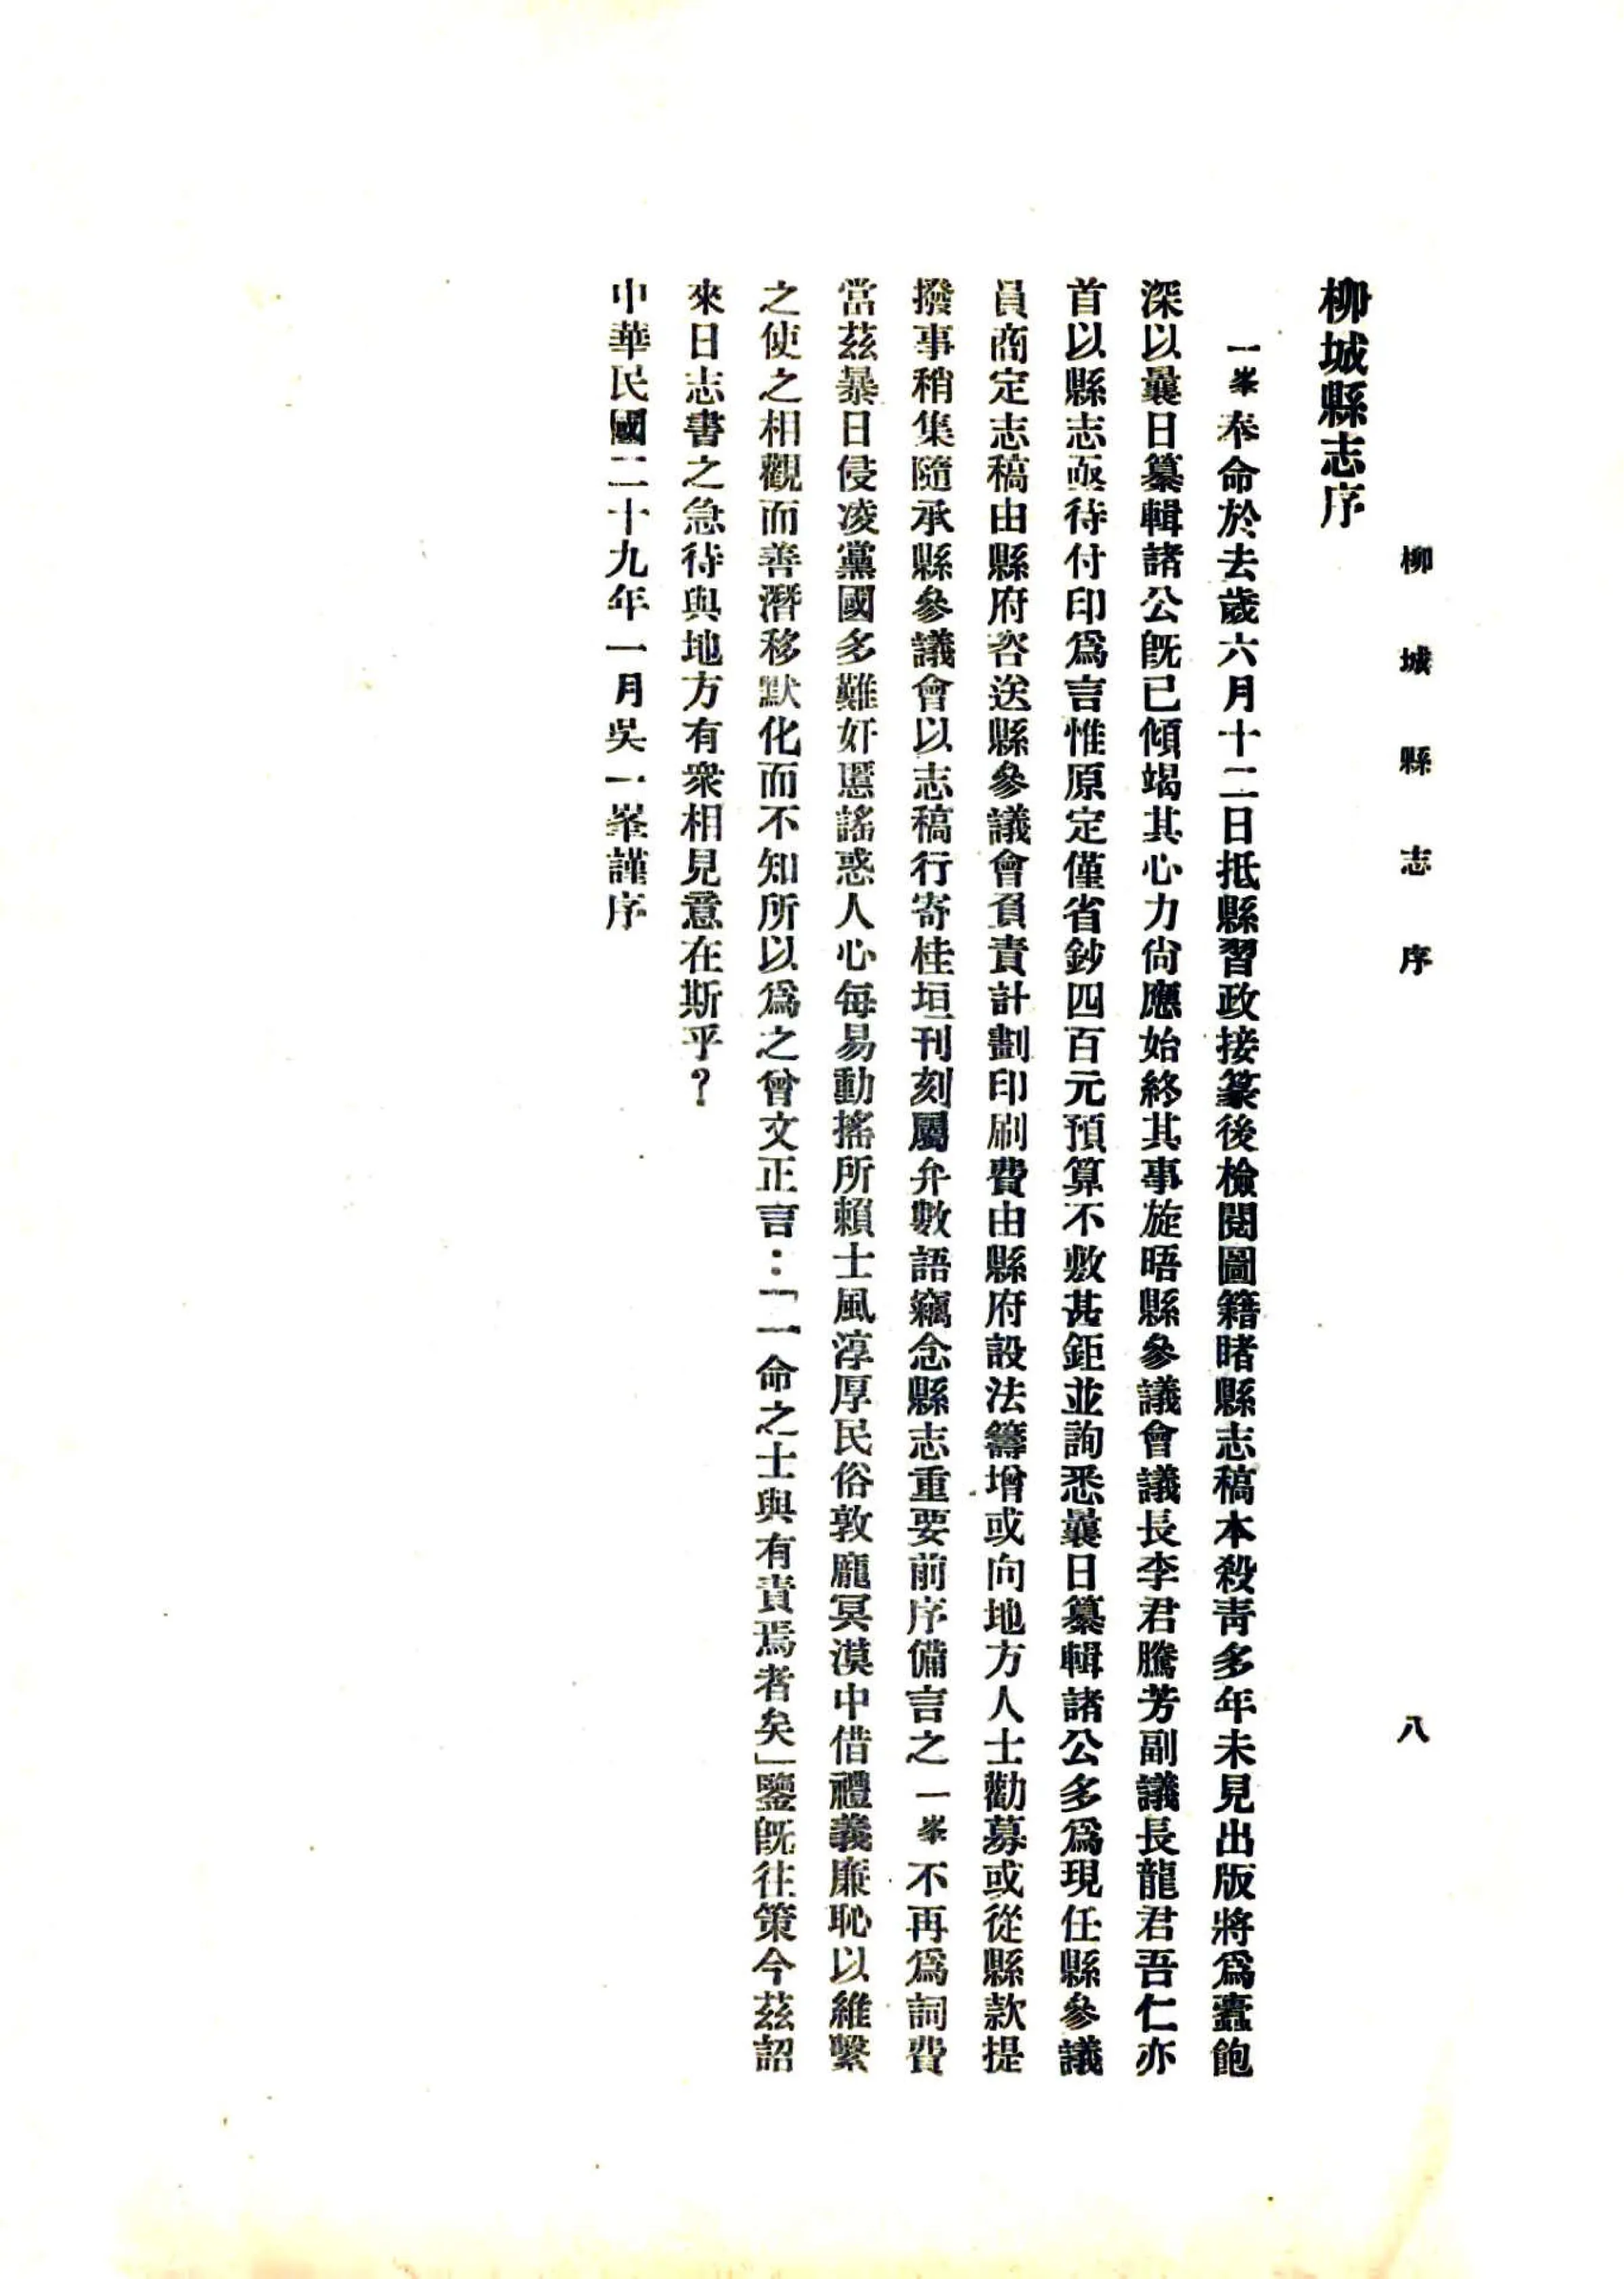 柳城縣志序
八
柳城縣志序
一峯奉命於去歲六月十二日抵縣習政接篆後檢閱圖籍睹縣志稿本殺靑多年未見出版將爲蠹飽
深以曩日纂輯諸公旣已傾竭其心力尙應始終其事旋晤縣參議會議長李君騰芳副議長龍君吾仁亦
首以縣志亟待付印爲言惟原定僅省鈔四百元預算不敷甚鉅並詢悉曩日纂輯諸公多爲現任縣參議
員商定志稿由縣府咨送縣參議會負責計劃印刷費由縣府設法籌增或向地方人士勸募或從縣款提
撥事稍集隨承縣參議會以志稿行寄桂垣刊刻屬弁數語竊念縣志重要前序備言之一峯不再爲詞費
當茲暴日侵凌黨國多難奸慝謠惑人心每易動搖所賴士風淳厚民俗敦龐冥漠中借禮義廉恥以維繫
之使之相觀而善潛移默化而不知所以爲之曾文正言：「一命之士與有責焉者矣」鑒旣往策今茲詔
來日志書之急待與地方有衆相見意在斯乎？
中華民國二十九年一月吳一峯謹序